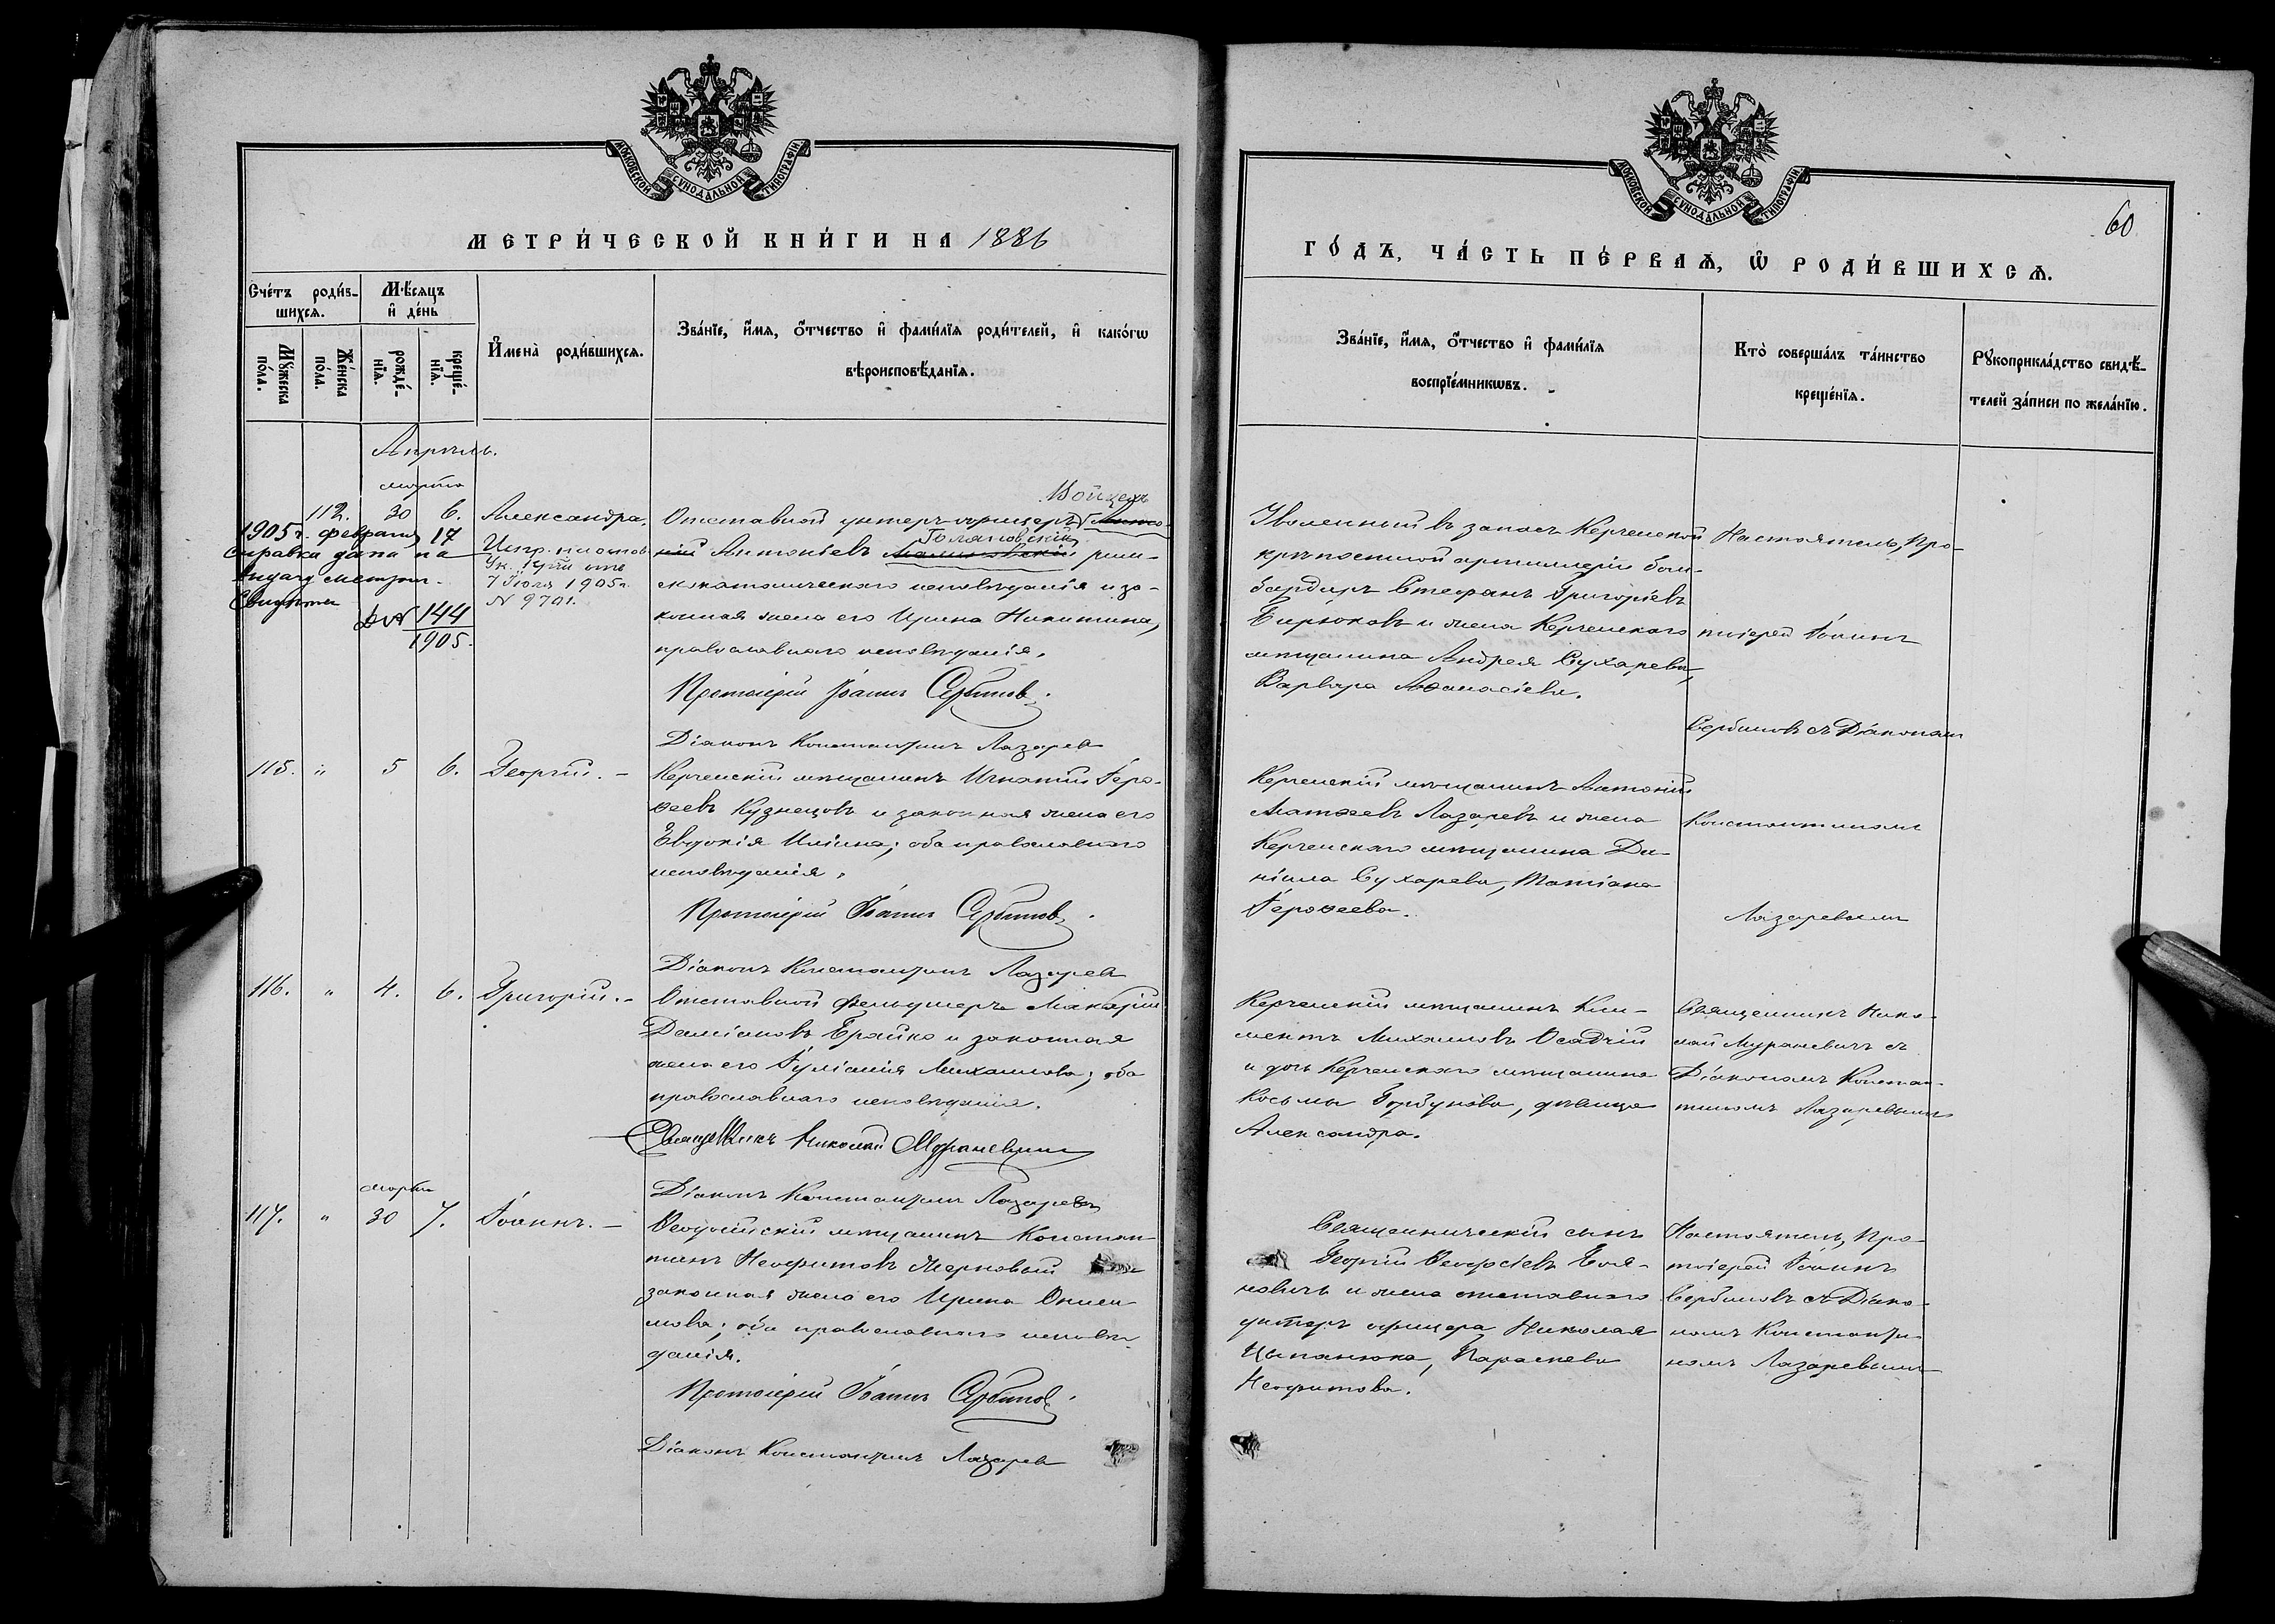 МОСКОВСКОЙ СУНОДАЛЬНОЙ ТИПОГРАФІИ
МЕТРИ́ЧЕСКОЙ КНИ́ГИ НА 1886
Сче́тъ роди́в-
шихсѧ.
Мѣ́сѧцъ
и҆ де́нь
Мꙋ́жеска
по́ла.
Же́нска
по́ла.
рожде́-
нїѧ.
креще́-
нїѧ.
И҆мена̀ роди́вшихсѧ.
Зва́нїе, и҆́мѧ, ѻ҆́тчество и҆ фами́лїѧ роди́телей, и҆ како́гѡ
вѣроисповѣ́данїѧ.
Апрѣль.
марта
112. 30 6. Александра.
1905 г. февраля 17
справка дана на
выдачу метрич.
Свидѣт
№ 144
1905.
Испр. на основ.
Ук. от
7 Іюля 1905 г.
N 9701.
Войцехъ
Отставной унтеръ-офицеръ Анто-
Голяновскій
ній Антоніевъ рим-
скокатолическаго исповѣданія и за-
конная жена его Ирина Никитина,
православнаго исповѣданія.
Протоіерей Іоаннъ Сербиновъ.
Діаконъ Константинъ Лазаревъ
115. " 5 6. Георгій. –
Керченскій мѣщанинъ Игнатій Іеро-
ѳеевъ Кузнецовъ и законная жена его
Евдокія Иліина; оба православнаго
исповѣданія.
Протоіерей Іоаннъ Сербиновъ.
Діаконъ Константинъ Лазаревъ
116. " 4. 6. Григорій. –
Отставной фельдшеръ Макарій
Даміановъ Брайко и законная
жена его Іуліанія Михаилова; оба
православнаго исповѣданія.
Священникъ Николай Мураневичъ
Діаконъ Константинъ Лазаревъ
марта
117. " 30 7. Іоаннъ. –
Ѳеодосійскій мѣщанинъ Констан-
тинъ Неофитовъ Жерновый
законная жена его Ирина
мова; оба православнаго исповѣ-
данія.
Протоіерей Іоаннъ Сербиновъ.
Діаконъ Константинъ Лазаревъ
МОСКОВСКОЙ СУНОДАЛЬНОЙ ТИПОГРАФІИ
60
ГО́ДЪ, ЧА́СТЬ ПЕ́РВАѦ, Ѡ҆ РОДИ́ВШИХСѦ.
Зва́нїе, и҆́мѧ, ѻ҆́тчество и҆ фами́лїѧ
воспрїе́мникѡвъ.
Кто̀ соверша́лъ та́инство
креще́нїѧ.
Рꙋкоприкла́дство свидѣ́-
телей за́писи по жела́нїю.
Уволенный въ запасъ Керченской
крѣпостной артиллеріи бом-
бардиръ Стефанъ Григоріевъ
Бирюковъ и жена Керченскаго
мѣщанина Андрея Сухарева,
Варвара Аѳанасіева.
Настоятель, Про-
тоіерей Іоаннъ
Сербиновъ съ Діакономъ
Константиномъ
Лазаревымъ
Керченскій мѣщанинъ Антоній
Матѳеевъ Лазаревъ и жена
Керченскаго мѣщанина Да-
ніила Сухарева, Татіана
Іероѳеева.
Керченскій мѣщанинъ Кли-
ментъ Михаиловъ Осадчій
и дочь Керченскаго мѣщанина
Косьмы Горбунова, дѣвица
Александра.
Священникъ Нико-
лай Мураневичъ съ
Діакономъ Констан-
тиномъ Лазаревымъ
Священническій сынъ
Георгій Ѳеофсіевъ Боя-
новичъ и жена отставного
унтеръ офицера Николая
Цыпанюка, Параскева
Неофитова.
Настоятель, Про-
тоіерей Іоаннъ
Сербиновъ съ Діако-
номъ Константи-
номъ Лазаревымъ